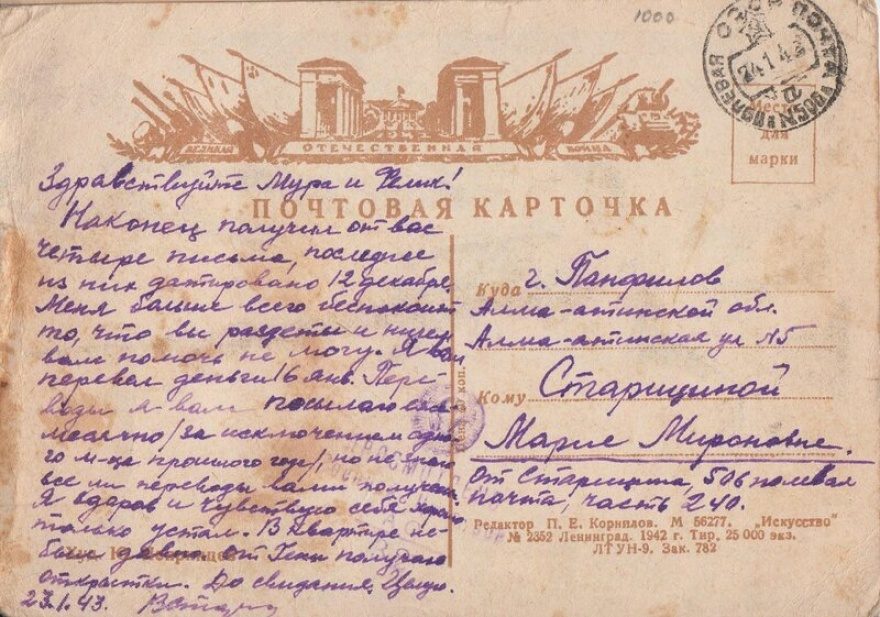 1000
ПОЛЕВАЯ ПОЧТА
СССР
24.1.43
Место
для
марки
ВЕЛИКАЯ ОТЕЧЕСТВЕННАЯ ВОЙНА
ПОЧТОВАЯ КАРТОЧКА
Здравствуйте Мура и Релик!
Наконец получил от вас
четыре письма, последнее
из них датировано 12 декабря,
Меня больше всего беспокоит
то, что вы раздеты и ничем
вам помочь не могу. Я вам
перевел деньги 16 янв. Пере-
воды я вам посылаю еже-
месячно /за исключением одно-
го м-ца прошлого года/, но не знаю
все ли переводы вами получены
Я здоров и чувствую себя хорошо,
только устал. В квартире не
был давно. От получаю
открытки. До свидания. Целую.
23.1.43.
Куда г. Панфилов
Алма-атинской обл.
Алма-атинская ул №5
Кому Старициной
Марие Мироновне.
От Старицина, 506 полевая
почта, часть 240.
Редактор П. Е. Корнилов. М 56277. „Искусство"
№ 2352 Ленинград. 1942 г. Тир. 25 000 экз.
ЛТУН-9. Зак. 782